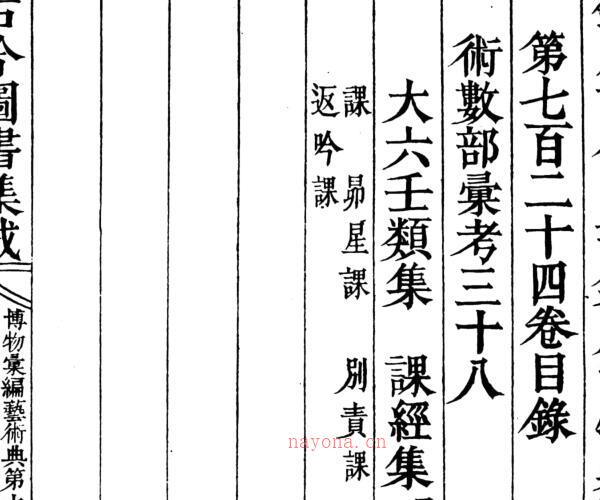 第七百二十四卷目錄
術數部彙考三十八
大六壬類集 課經集
課 昴星課 別責課
返吟課
古今圖書集成
博物彙編藝術典第
nayona.cn